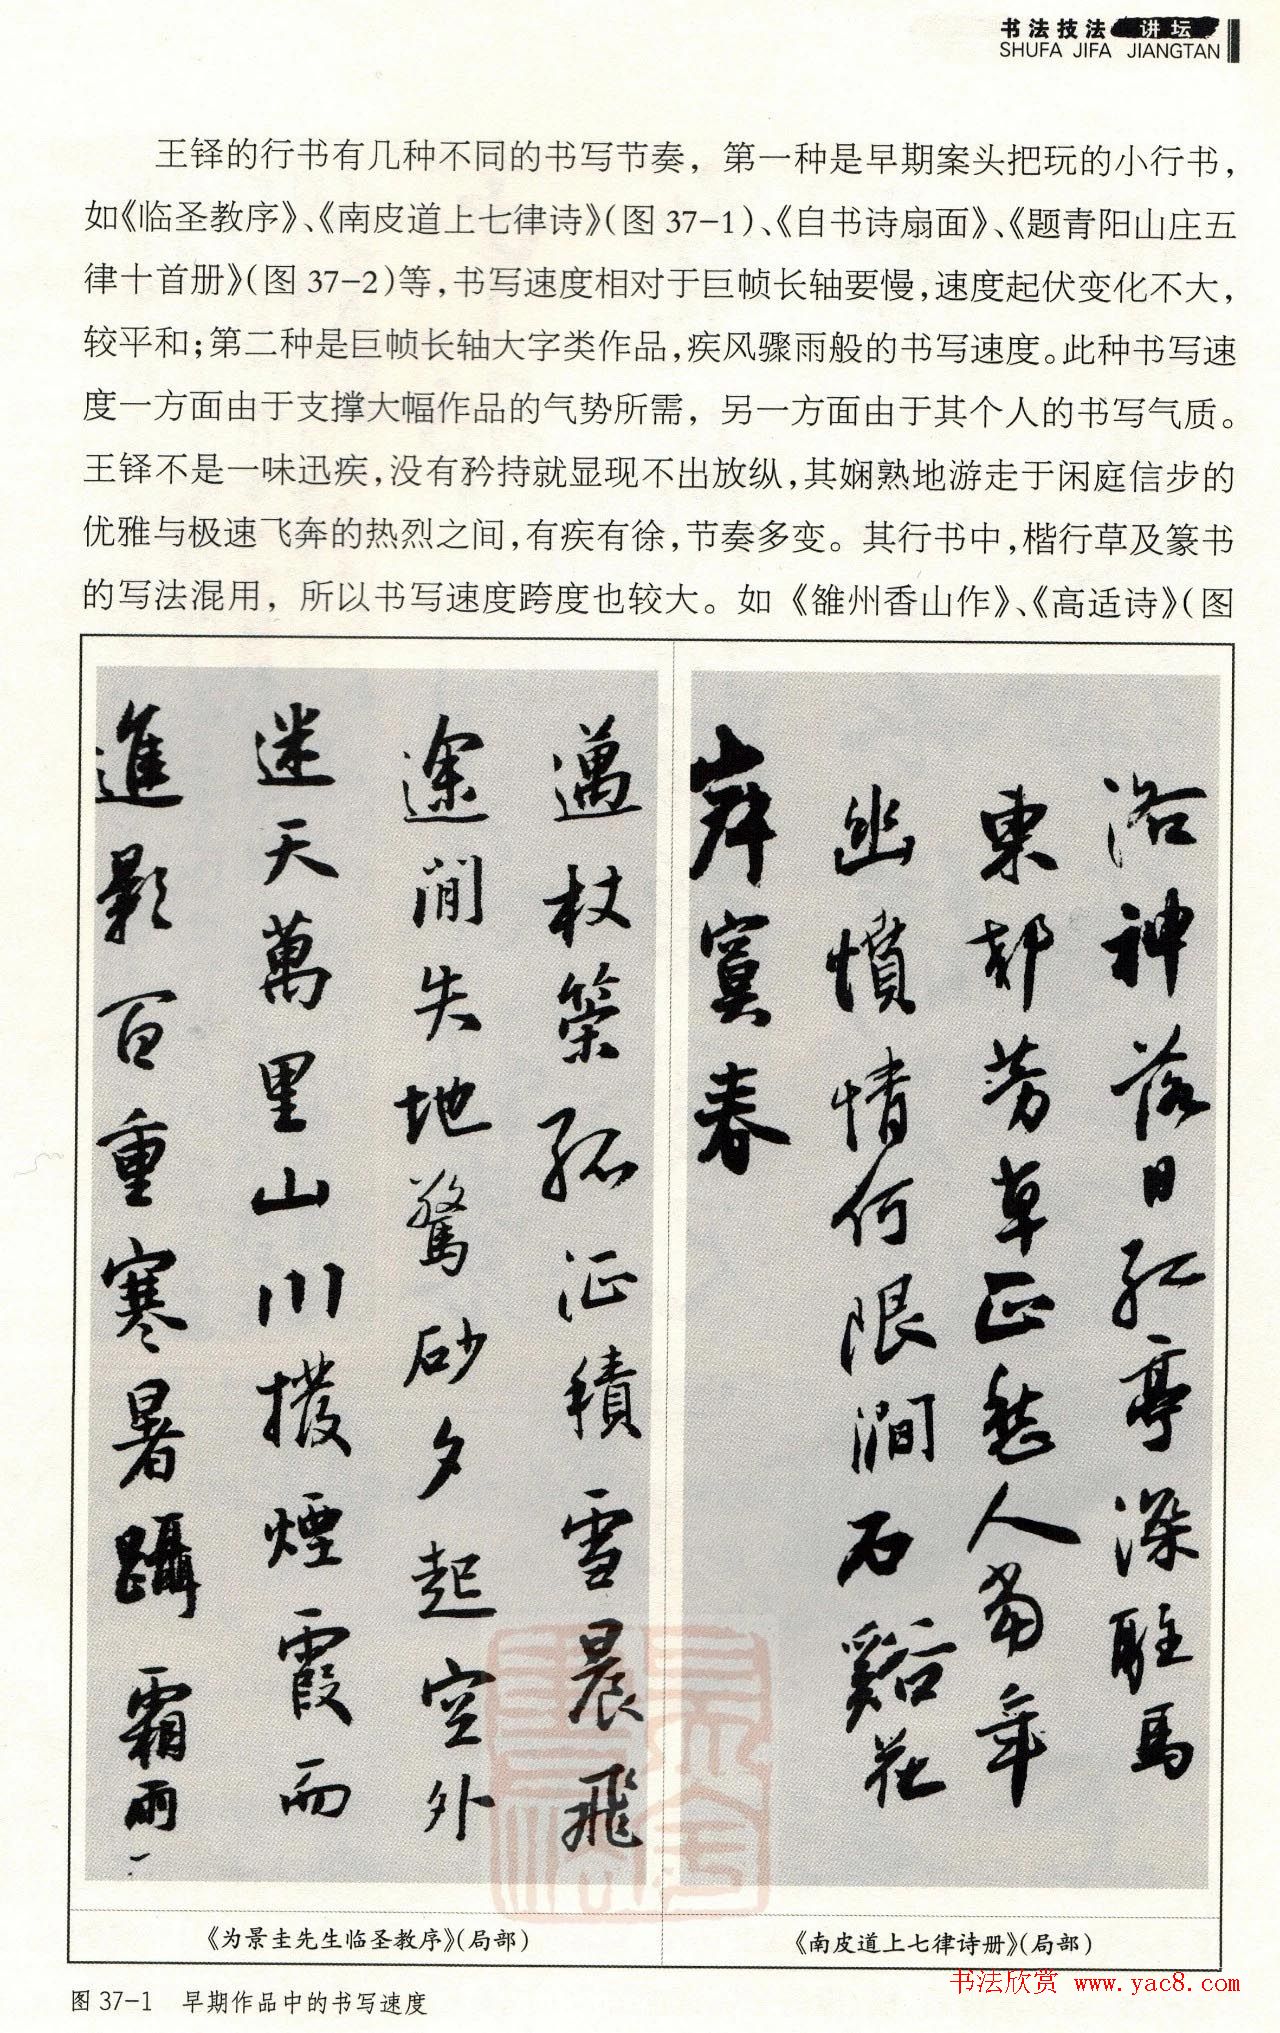 书法技法 讲坛
SHUFA JIFA JIANGTAN
王铎的行书有几种不同的书写节奏，第一种是早期案头把玩的小行书，
如《临圣教序》、《南皮道上七律诗》（图 37-1）、《自书诗扇面》、《题青阳山庄五
律十首册》（图 37-2）等，书写速度相对于巨帧长轴要慢，速度起伏变化不大，
较平和；第二种是巨帧长轴大字类作品，疾风骤雨般的书写速度。此种书写速
度一方面由于支撑大幅作品的气势所需，另一方面由于其个人的书写气质。
王铎不是一味迅疾，没有矜持就显现不出放纵，其娴熟地游走于闲庭信步的
优雅与极速飞奔的热烈之间，有疾有徐，节奏多变。其行书中，楷行草及篆书
的写法混用，所以书写速度跨度也较大。如《雒州香山作》、《高适诗》（图
邁杖策孤征積雪晨飛
途間失地驚砂夕起空外
迷天萬里山川撥煙霞而
進影百重寒暑躡霜雨
《为景圭先生临圣教序》（局部）
洛神落日紅亭深駐馬
東都芳草正愁人當年
幽憤情何限澗石谿花
春
《南皮道上七律诗册》（局部）
书法欣赏 www.yac8.com
图 37-1 早期作品中的书写速度